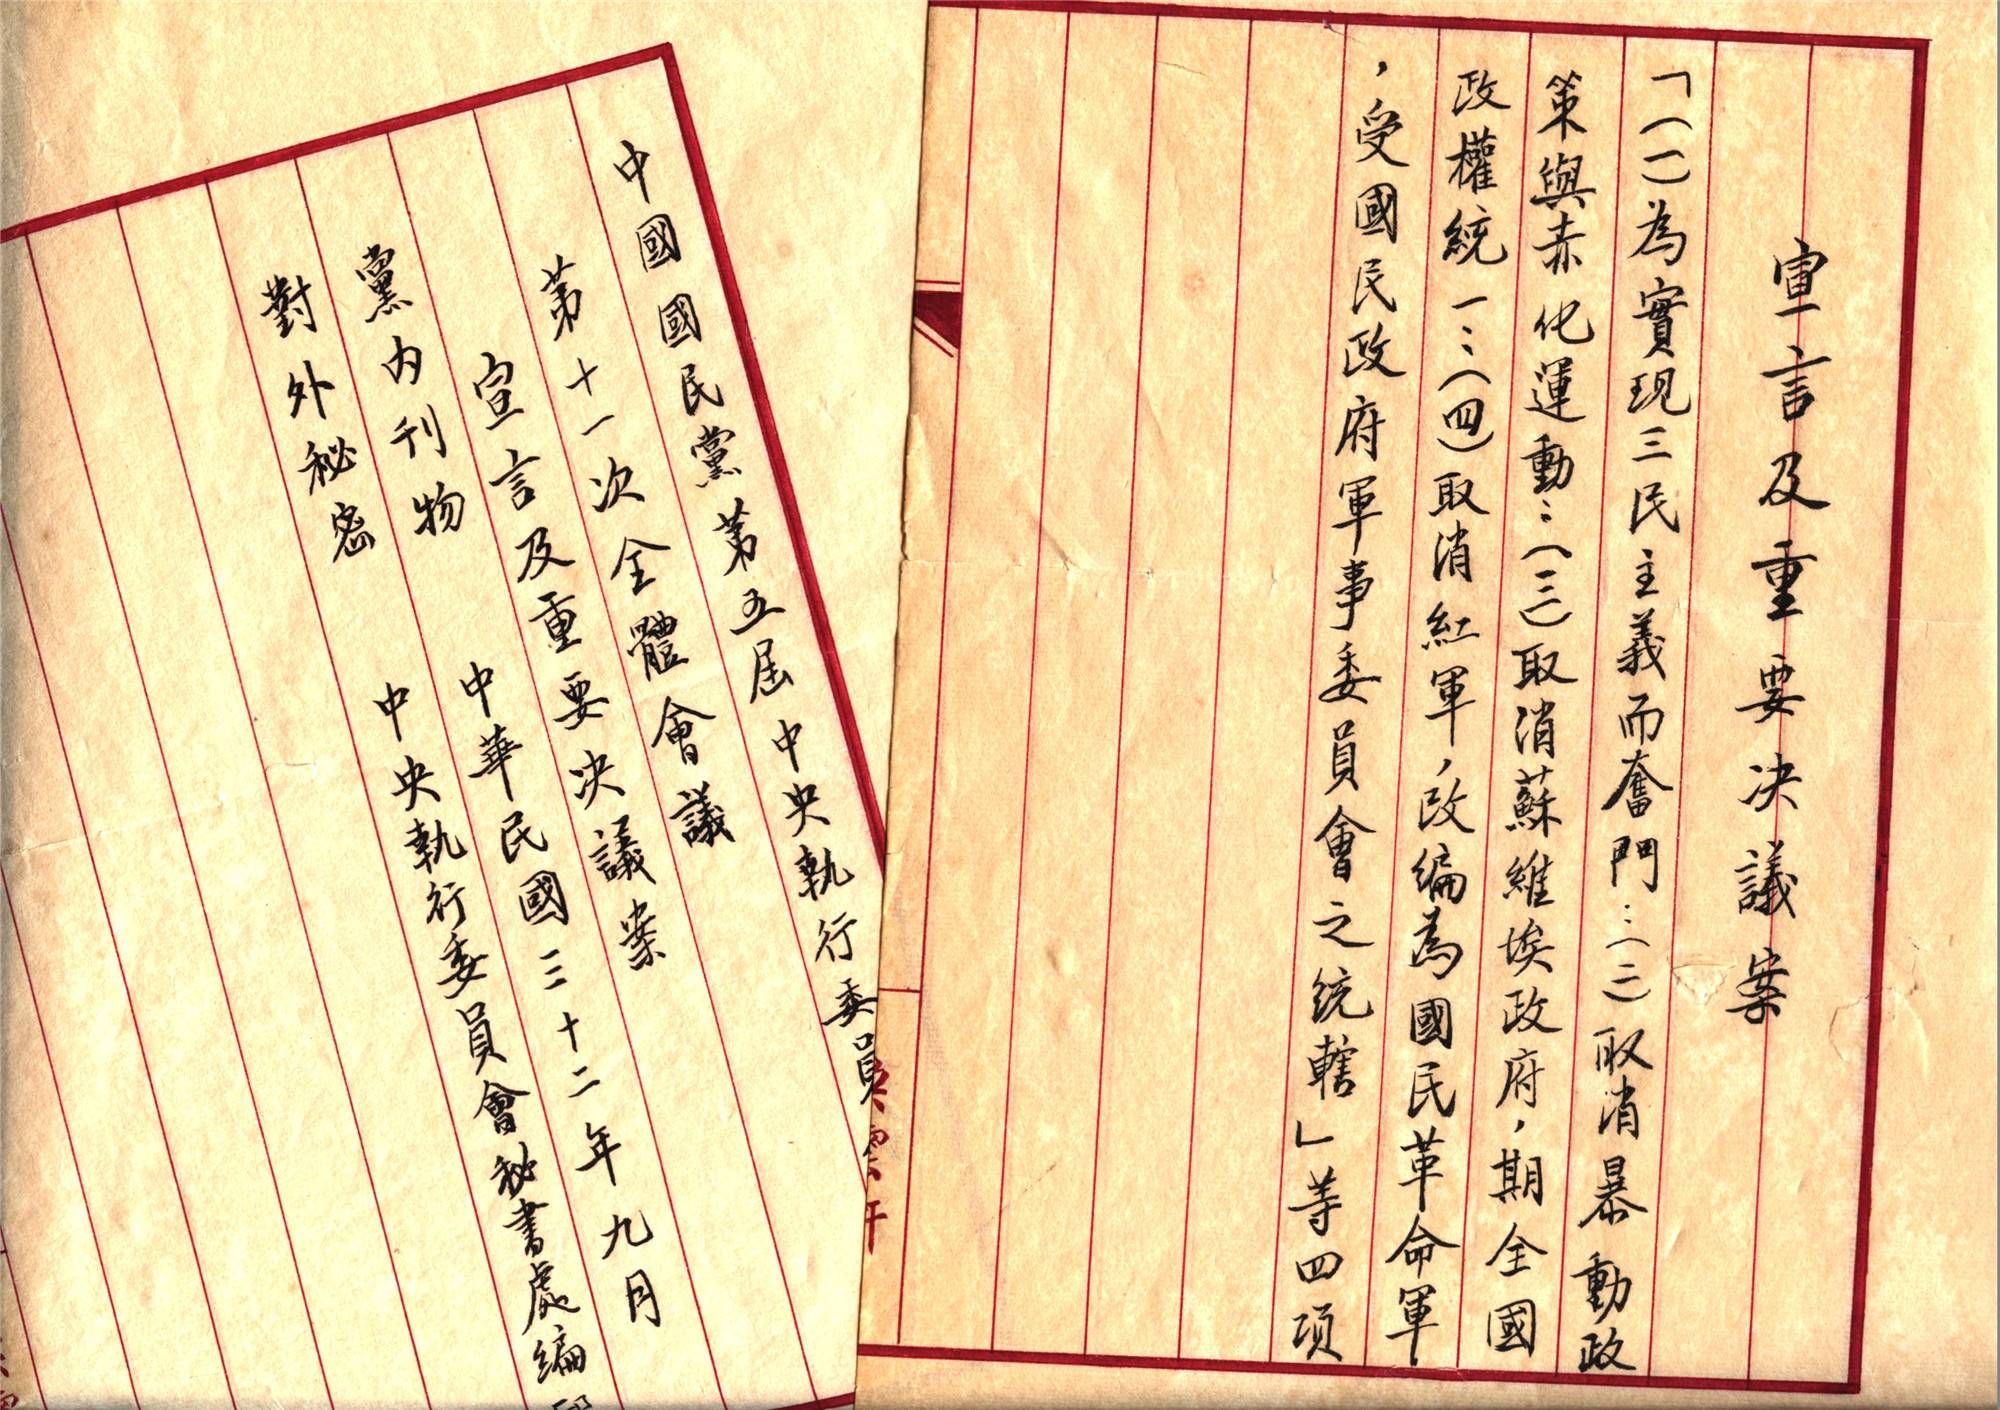 宣言及重要决議案
「(一)為實現三民主義而奮鬥…(二)取消暴動政
策與赤化運動…(三)取消蘇維埃政府，期全國
政權統一…(四)取消紅軍，改編為國民革命軍
，受國民政府軍事委員會之统轄」等四項
中國國民黨第五屆中央執行委員
第十一次全體會議
宣言及重要决議案
黨内刊物　中華民國三十二年九月
對外秘密　中央執行委員會秘書處編